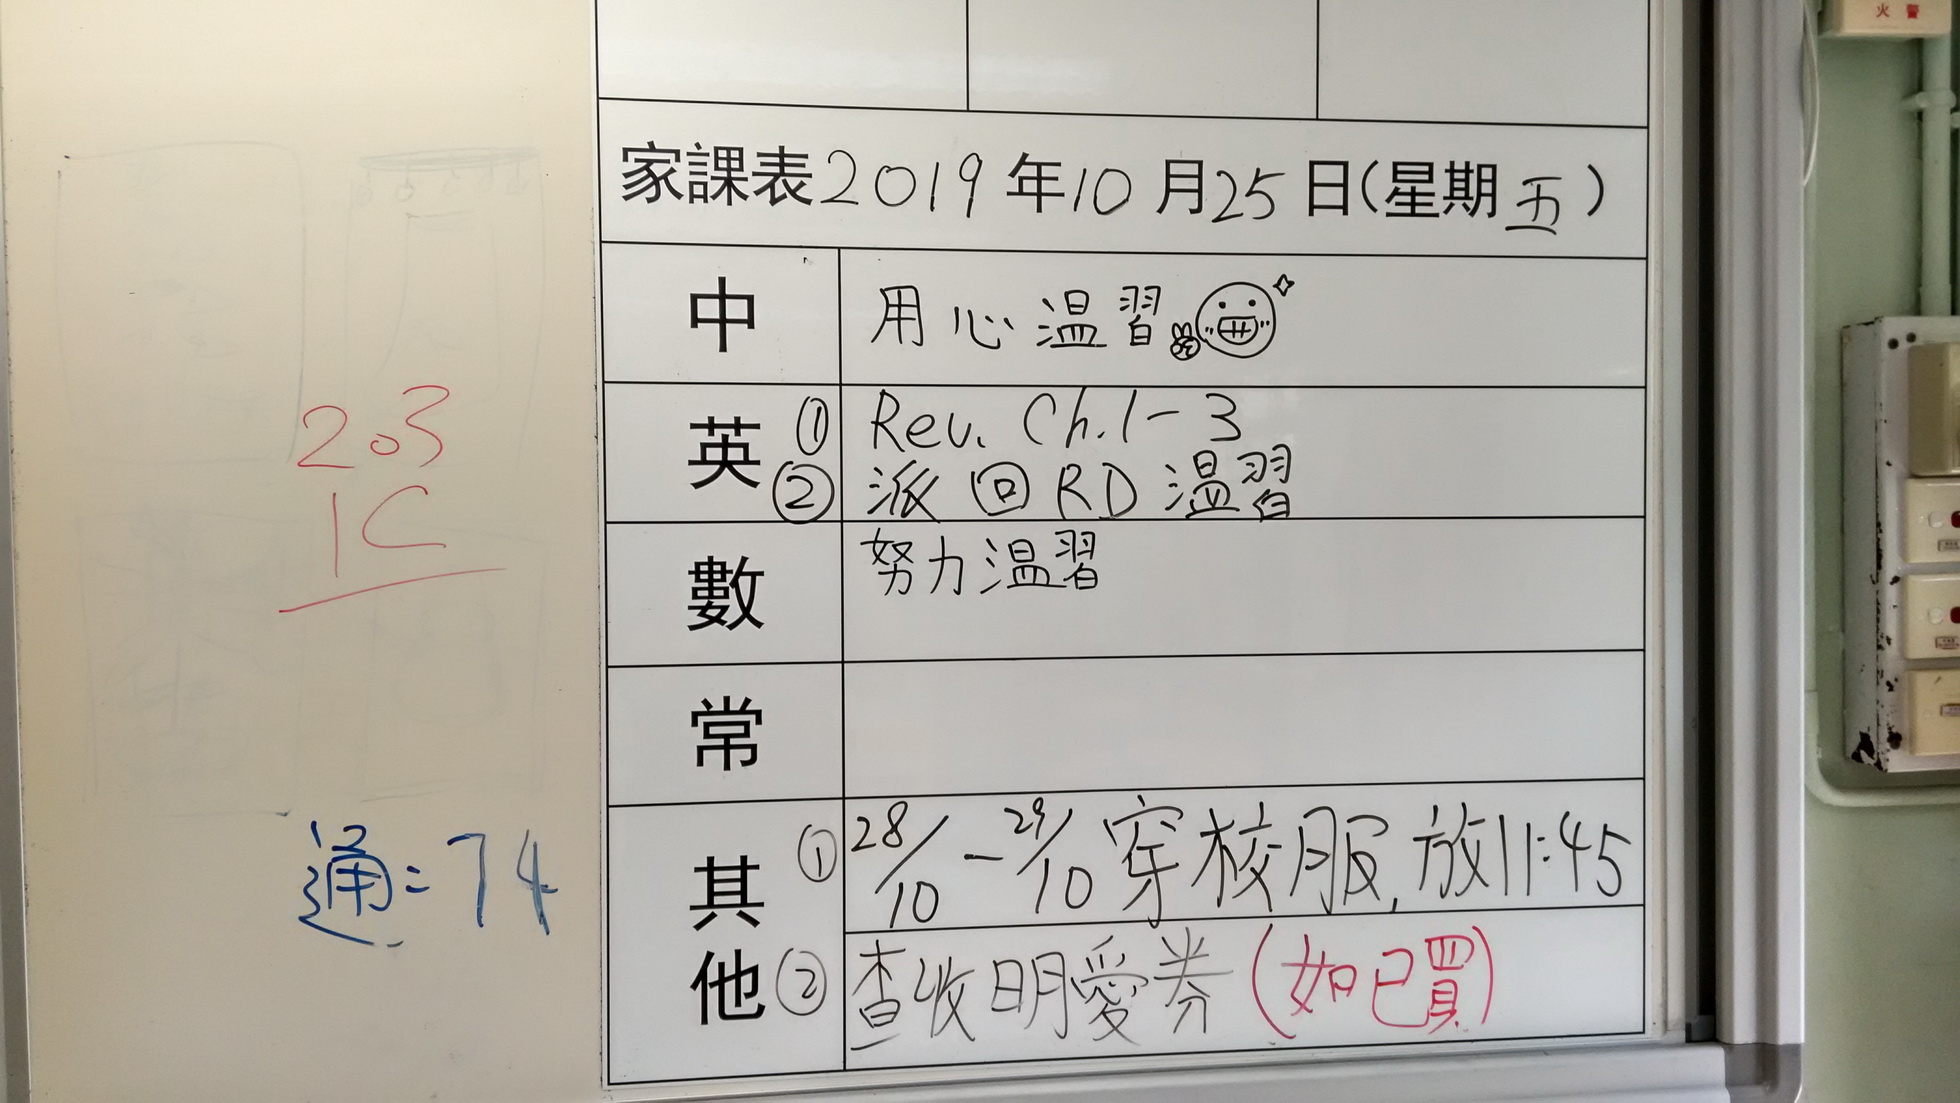 火警
家課表2019年10月25日(星期五)
中 用心温習
英 ① Rev. Ch.1-3
② 派回RD温習
數 努力温習
常
其他 ① 28/10-29/10穿校服,放11:45
② 查收明愛券(如已買)
203
1C
通:74